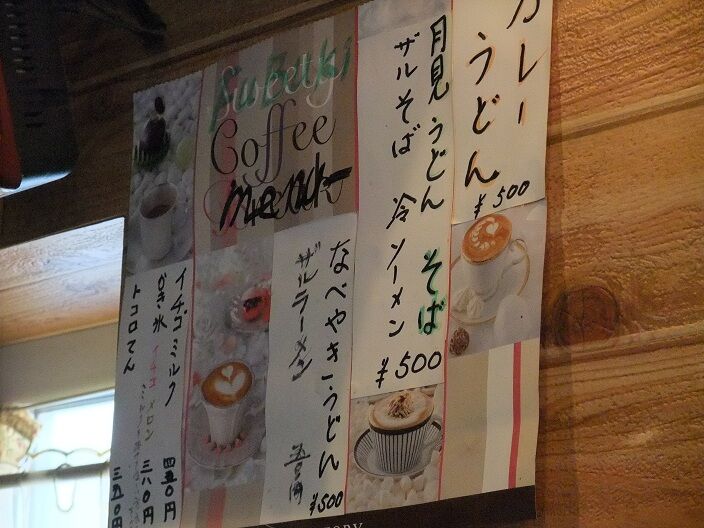 Sweetki
Coffee
Menu
カレー
うどん
¥500
月見うどん そば
ザルそば 冷ソーメン
¥500
なべやきうどん
¥500
ザルラーメン
イチゴミルク 四五〇円
かき氷 イチゴ メロン 三八〇円
トコロてん 三五〇円